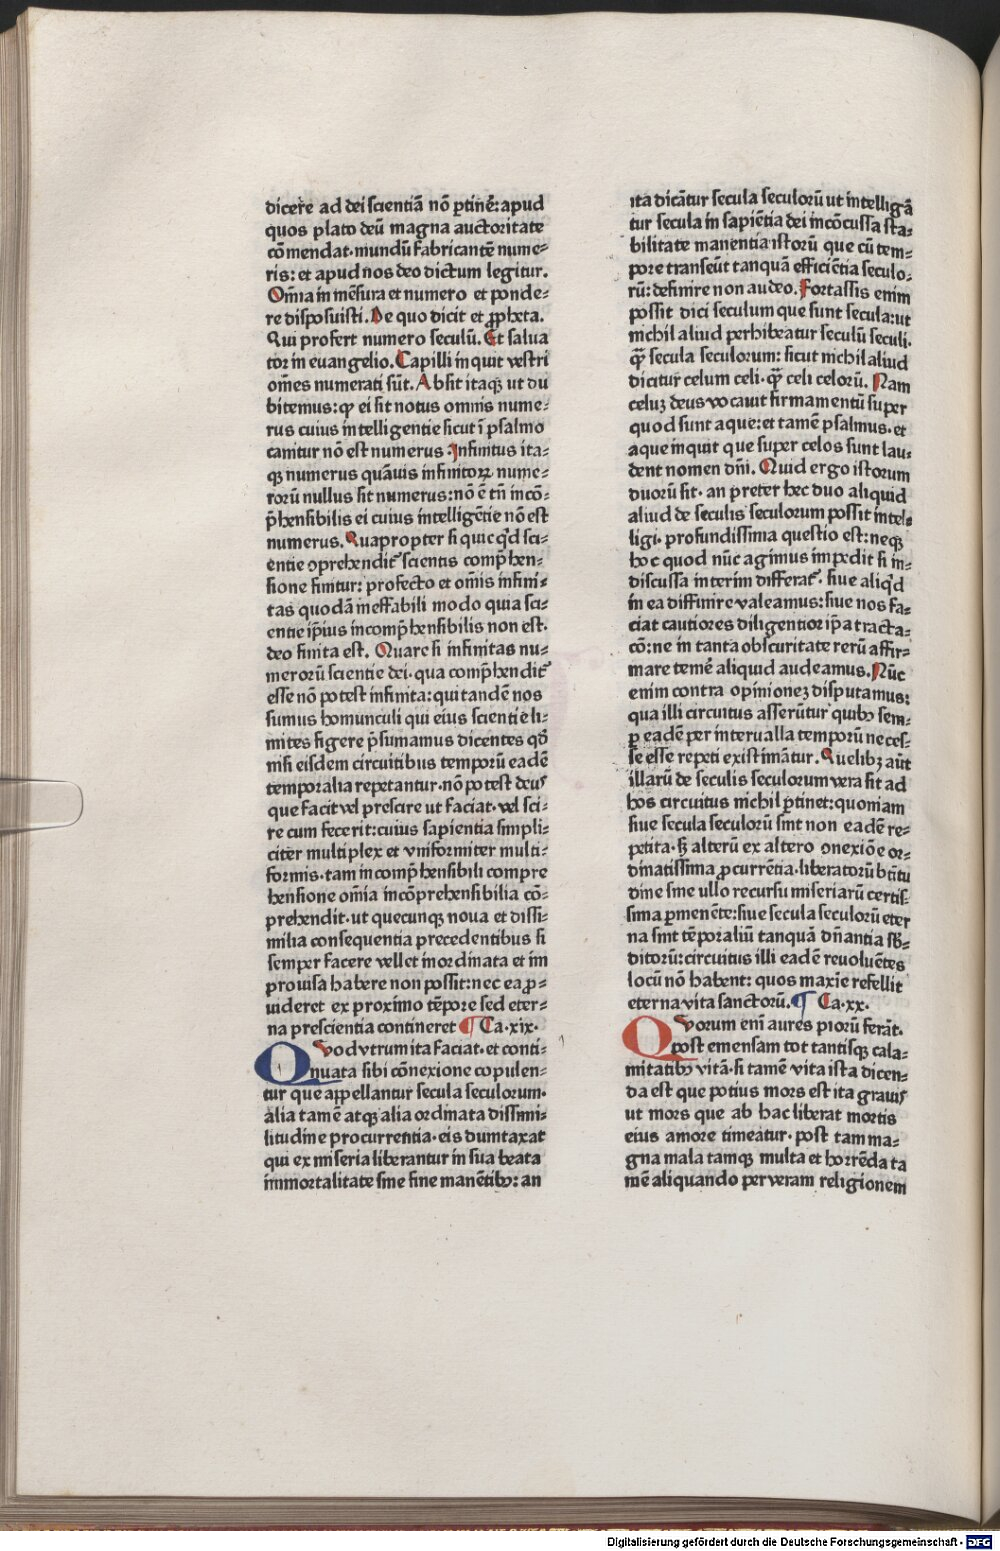 dicere ad dei scientiã nõ ꝑtinẽ: apud
quos plato deũ magna auctoritate
cõmendat. mundũ fabricantẽ nume-
ris: et apud nos deo dictum legitur.
Om̃ia in mẽsura et numero et ponde-
re disposuisti. De quo dicit et ꝓpheta.
Qui profert numero seculũ. Et salua
tor in euangelio. Capilli inquit vestri
om̃es numerati sũt. Absit itaqꝫ ut du
bitemus: ꝙ ei sit notus omnis nume-
rus cuius intelligentie sicut ĩ psalmo
canitur nõ est numerus: Infinitus ita-
qꝫ numerus quãuis infinitoꝝ nume-
rorũ nullus sit numerus: nõ ẽ tñ incõ-
p̃hensibilis ei cuius intelligẽtie nõ est
numerus. Quapropter si quicq̇d sci-
entie ꝯprehendit᷑ scientis comp̃hen-
sione finitur: profecto et om̃is infini-
tas quodã ineffabili modo quia sci-
entie ip̃ius incomp̃hensibilis non est.
deo finita est. Quare si infinitas nu-
merorũ scientie dei. qua comp̃hendit᷑
esse nõ potest infinita: qui tandẽ nos
sumus homunculi qui eius scientie li-
mites figere p̃sumamus dicentes qđ
nisi eisdem circuitibus temporũ eadẽ
temporalia repetantur. nõ potest deus
que facit vel prescire ut faciat. vel sci-
re cum fecerit: cuius sapientia simpli-
citer multiplex et vniformiter multi-
formis. tam incomp̃hensibili compre
hensione om̃ia incõprehensibilia cõ-
prehendit. ut quecunqꝫ noua et dissi-
milia consequentia precedentibus si
semper facere vellet inordinata et im
prouisa habere non possit: nec ea ꝓ-
uideret ex proximo tẽpore sed eter-
na prescientia contineret ¶ Ca.xix.
Quod vtrum ita faciat. et conti-
nuata sibi cõnexione copulen-
tur que appellantur secula seculorum.
alia tamẽ atqꝫ alia ordinata dissimi-
litudine procurrentia. eis dumtaxat
qui ex miseria liberantur in sua beata
immortalitate sine fine manẽtibꝫ: an
ita dicãtur secula seculorũ ut intelligã
tur secula in sapiẽtia dei incõcussa sta-
bilitate manentia istorũ que cũ tem-
pore transeũt tanquã efficiẽtia seculo-
rũ: definire non audeo. Fortassis enim
possit dici seculum que sunt secula: ut
nichil aliud perhibeatur seculũ seculi.
ꝙ̃ secula seculorum: sicut nichil aliud
dicitur celum celi. ꝙ̃ celi celorũ. Nam
celuꝫ deus vocauit firmamentũ super
quod sunt aque: et tamẽ psalmus. et
aque inquit que super celos sunt lau-
dent nomen dñi. Quid ergo istorum
duorũ sit. an preter hec duo aliquid
aliud de seculis seculorum possit intel-
ligi. profundissima questio est: neqꝫ
hoc quod nũc agimus impedit si in-
discussa interim differat᷑. siue aliq̇d
in ea diffinire valeamus: siue nos fa-
ciat cautiores diligentior ip̃a tracta-
cõ: ne in tanta obscuritate rerũ affir-
mare temẽ aliquid audeamus. Nũc
enim contra opinioneꝫ disputamus:
qua illi circuitus asserũtur quibꝫ sem-
ꝑ eadẽ per interualla temporũ neces-
se esse repeti existimãtur. Quelibꝫ aũt
illarũ de seculis seculorum vera sit ad
hos circuitus nichil ꝑtinet: quoniam
siue secula seculorũ sint non eadẽ re-
petita. sꝫ alterũ ex altero ꝯnexiõe or-
dinatissima ꝓcurrẽtia. liberatorũ bt̃itu
dine sine ullo recursu miseriarũ certis-
sima ꝑmenẽte: siue secula seculorũ eter
na sint tẽporaliũ tanquã dñantia sb̃-
ditorũ: circuitus illi eadẽ reuoluẽtes
locũ nõ habent: quos maxĩe refellit
eterna vita sanctorũ. ¶ Ca.xx.
Quorum eni᷑ aures piorũ ferãt.
post emensam tot tantisqꝫ cala-
mitatibꝫ vitã. si tamẽ vita ista dicen-
da est que potius mors est ita grauis
ut mors que ab hac liberat mortis
eius amore timeatur. post tam ma-
gna mala tamqꝫ multa et horrẽda ta
mẽ aliquando per veram religionem
Digitalisierung gefördert durch die Deutsche Forschungsgemeinschaft - DFG